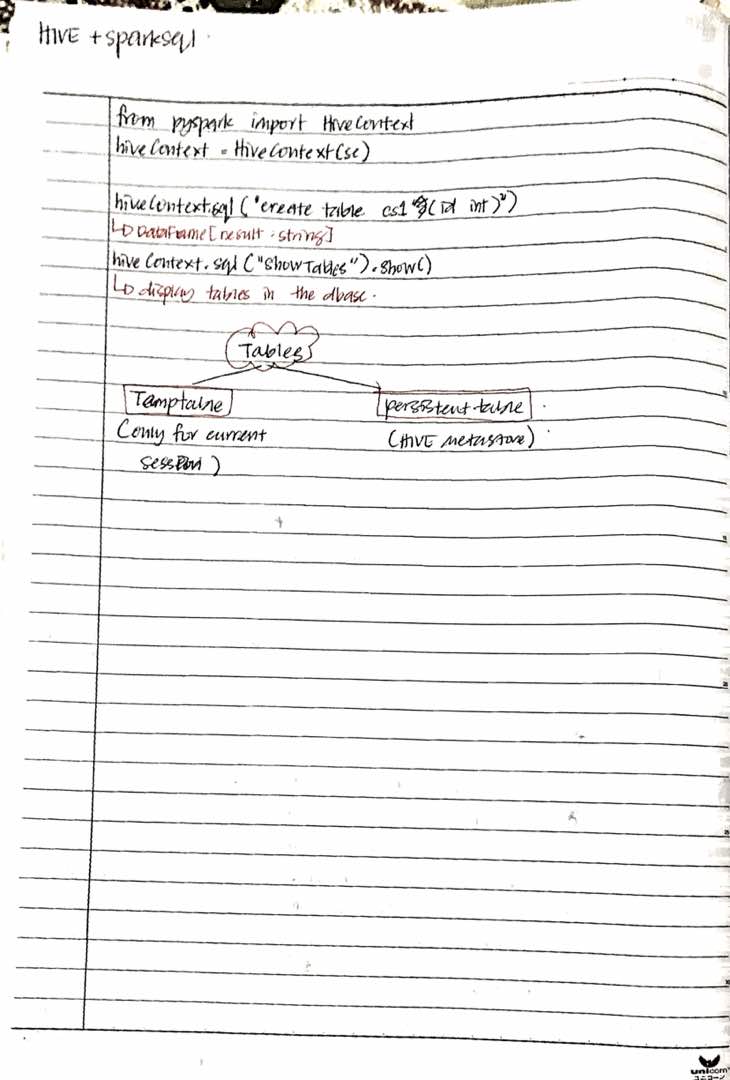 HIVE + sparksql
from pyspark import HiveContext
hiveContext = HiveContext(sc)
hiveContext.sql ("create table cs1 (id int)")
↳ DataFrame[result : string]
hiveContext.sql ("show Tables").show()
↳ display tables in the dbase.
Tables
Temptable
persistent table
(only for current
(HIVE metastore)
session)
unicorn
ユニコーン